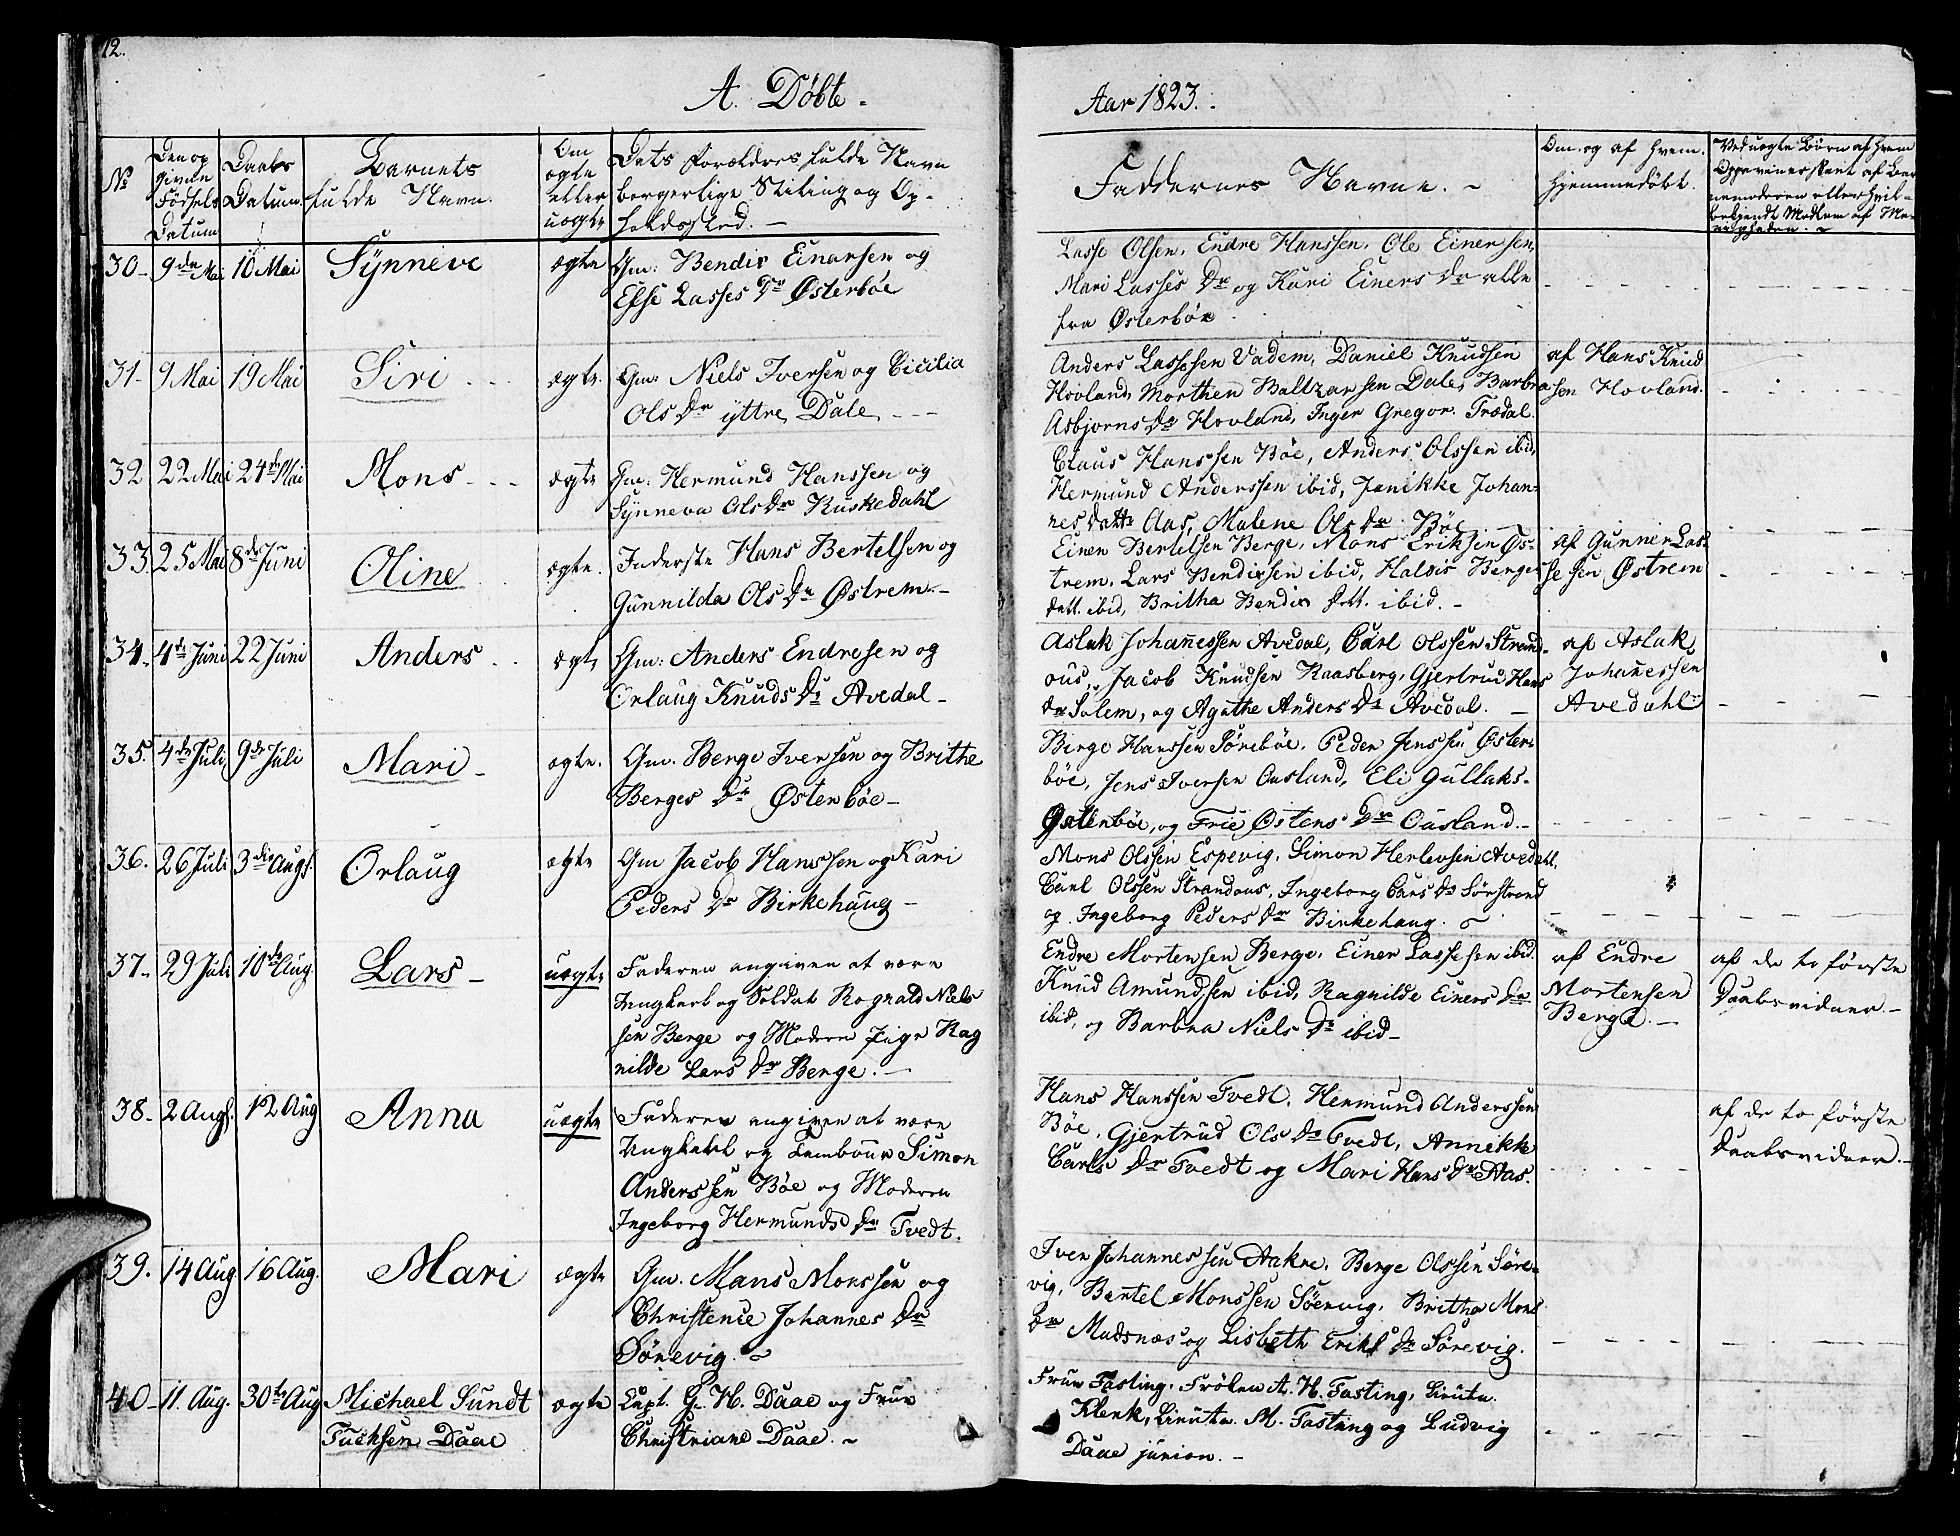 12.
A. Døbte.
Aar 1823.
No
Den op
givne
Fødsels
Datum
Daabs
Datum.
Barnets
fulde Navn.
Om
ægte
eller
uægte
Dets Forældres fulde Navn
borgerlige Stiling og Op-
holdssted. —
Faddernes Navne. ~
Om, og af hvem
hjemmedøbt.
Ved uægte Børn af hvem
30 — 9de Mai 10 Mai Synneve ægte Gm: Bendix Einersen og
Else Lasses Dr Østerbøe
Lasse Olsen, Endre Hanssen, Ole Einersen,
Mari Lasses Dr og Kari Einers Dr alle
fra Østerbøe.
31 — 9 Mai 19 Mai Siri ægte. Gm: Niels Iversen og Cicilia
Ols Dr yttre Dale
Anders Lassesen Vadem, Daniel Knudsen
Hovland, Morthen Baltzarsen Dale, Barbra
Asbjorns Dr Hovland, Inger Gregor. Trædal.
af Hans Knud
sen Hovland.
32 22 Mai 24de Mai Mons ægte Gm: Hermund Hanssen og
Synneva Ols Dr Kuskedahl
Claus Hanssen Bøe, Anders Olssen ibid,
Hermund Anderssen ibid, Janikke Johan-
nes Dattr Aas, Malene Ols Dr Bøe
33 25 Mai 8de Juni Oline ægte. Inderste Hans Bertelsen og
Gunnilda Ols Dr Østrem. —
Einer Bertelsen Berge, Mons Eriksen Øs-
trem, Lars Bendixsen ibid, Haldis Berges
Datt. ibid, Britha Bendix Datt. ibid. —
af Gunner Las-
se sen Østrem
34. 4de Juni 22 Juni Anders ægte Gm: Anders Endresen og
Orlaug Knuds Dr Avedal —
Aslak Johannessen Avedal, Carl Olssen Strand-
ous, Jacob Knudsen Raasberg, Gjertrud Hans
Dr Salem, og Agathe Anders Dr Avedal. —
af Aslak
Johannessen
Avedahl
35. 4de Juli 9de Juli Mari — ægte. Gm. Berge Iversen og Brithe
Berges Dr Østerbøe —
Birge Hanssen Sørebøe, Peder Jenssen Øster-
bøe, Jens Iversen Ousland, Eli Gullaks-
Østerbøe, og Frie Østens Dr Ousland. —
36. 26 Juli 3die Augs. Orlaug ægte Gm Jacob Hanssen og Kari
Peders Dr Birkehaug —
Mons Olssen Espevig, Simon Herlevsen Avedahl,
Carl Olssen Strandous, Ingeborg Cars Dr Sørstrand
og Ingeborg Peders Dr Birkehaug.
37. 29 Juli 10de Aug. Lars — uægte Faderen angiven at være
Ungkarl og Soldat Rognald Niels
sen Berge og Moderen Pige Rag
nilde Lars Dr Berge. —
Endre Mortensen Berge, Einer Lassesen ibid.
Knud Amundsen ibid, Ragnilde Einers Dr
ibid, og Barbra Niels Dr ibid —
af Endre
Mortensen
Berge. —
af de to første
Daabsvidner. —
38. 2 Augs. 12 Aug Anna uægte Faderen angiven at være
Ungkarl og Tambour Simon
Anderssen Bøe og Moderen
Ingeborg Hermunds Dr Tvedt.
Hans Hanssen Tvedt, Hermund Anderssen
Bøe, Gjertrud Ols Dr Tvedt, Annekke
Carls Dr Tvedt og Mari Hans Dr Aas.
af de to første
Daabsvidner. —
39. 14 Aug 16 Aug. Mari ægte Gm. Mons Monssen og
Christence Johannes Dr
Sørevig. ~
Iver Johannessen Aakre, Berge Olssen Søre-
vig, Bertel Monssen Sørevig, Britha Mons
Dr Madsnæs og Lisbeth Eriks Dr Sørevig.
40 — 11. Aug. 30te Aug Michael Sundt
Fuchsen Daae
ægte Capt. G. H. Daae og Frue
Christiane Daae. ~
Frue Fasting, Frøken A. H. Fasting, Lieuta.
Klenk, Lieuta. M. Fasting og Ludvig
Daae junior. —